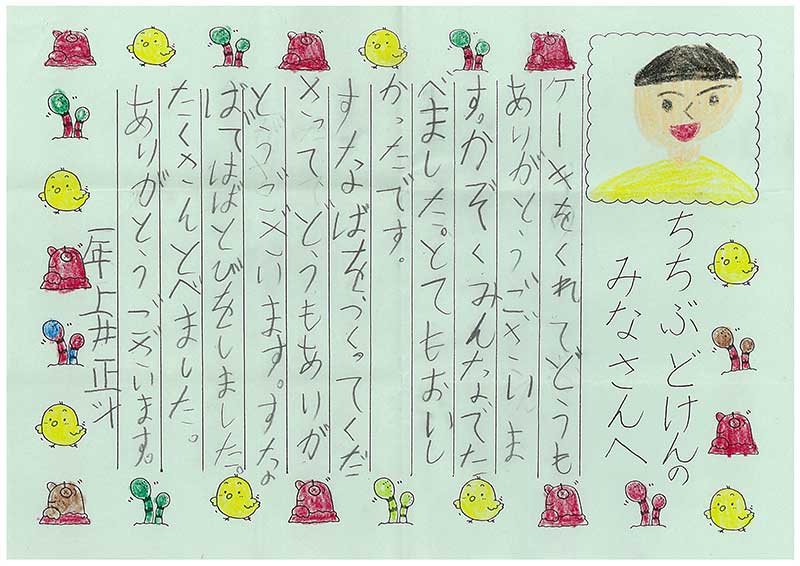 ちちぶどけんの
みなさんへ
ケーキをくれてどうも
ありがとうございま
す。かぞくみんなでた
べました。とてもおいし
かったです。
すなばをつくってくだ
さって、どうもありが
とうございます。すな
ばではばとびをしました。
たくさんとべました。
ありがとうございます。
一年 上井正